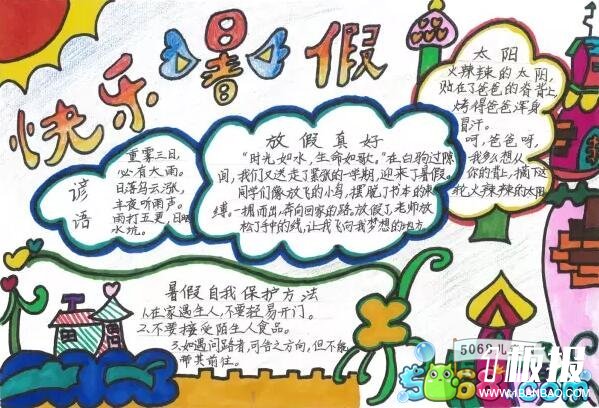 快乐暑假
谚语
重雾三日,
必有大雨。
日落乌云涨,
半夜听雨声。
雨打五更,日晒
水坑。
放假真好
“时光,如水,生命如歌。”在白驹过隙
间,我们又送走了紧张的一学期,迎来了暑假。
同学们像放飞的小鸟,摆脱了书本的束
缚。一拥而出,奔向回家的路。放假了,老师放
松了手中的线,让我飞向我梦想的地方
太阳
火辣辣的太阳,
贴在了爸爸的脊背上
烤得爸爸浑身
冒汗。
呵,爸爸呀,
我多么想从
你的背上,摘下这
轮火辣辣的太阳
暑假自我保护方法
1.在家遇生人,不要轻易开门。
2.不要接受陌生人食品。
3.如遇问路者,可告之方向,但不能
带其前往。
5068儿
板报
WWW.1BANBAO.COM